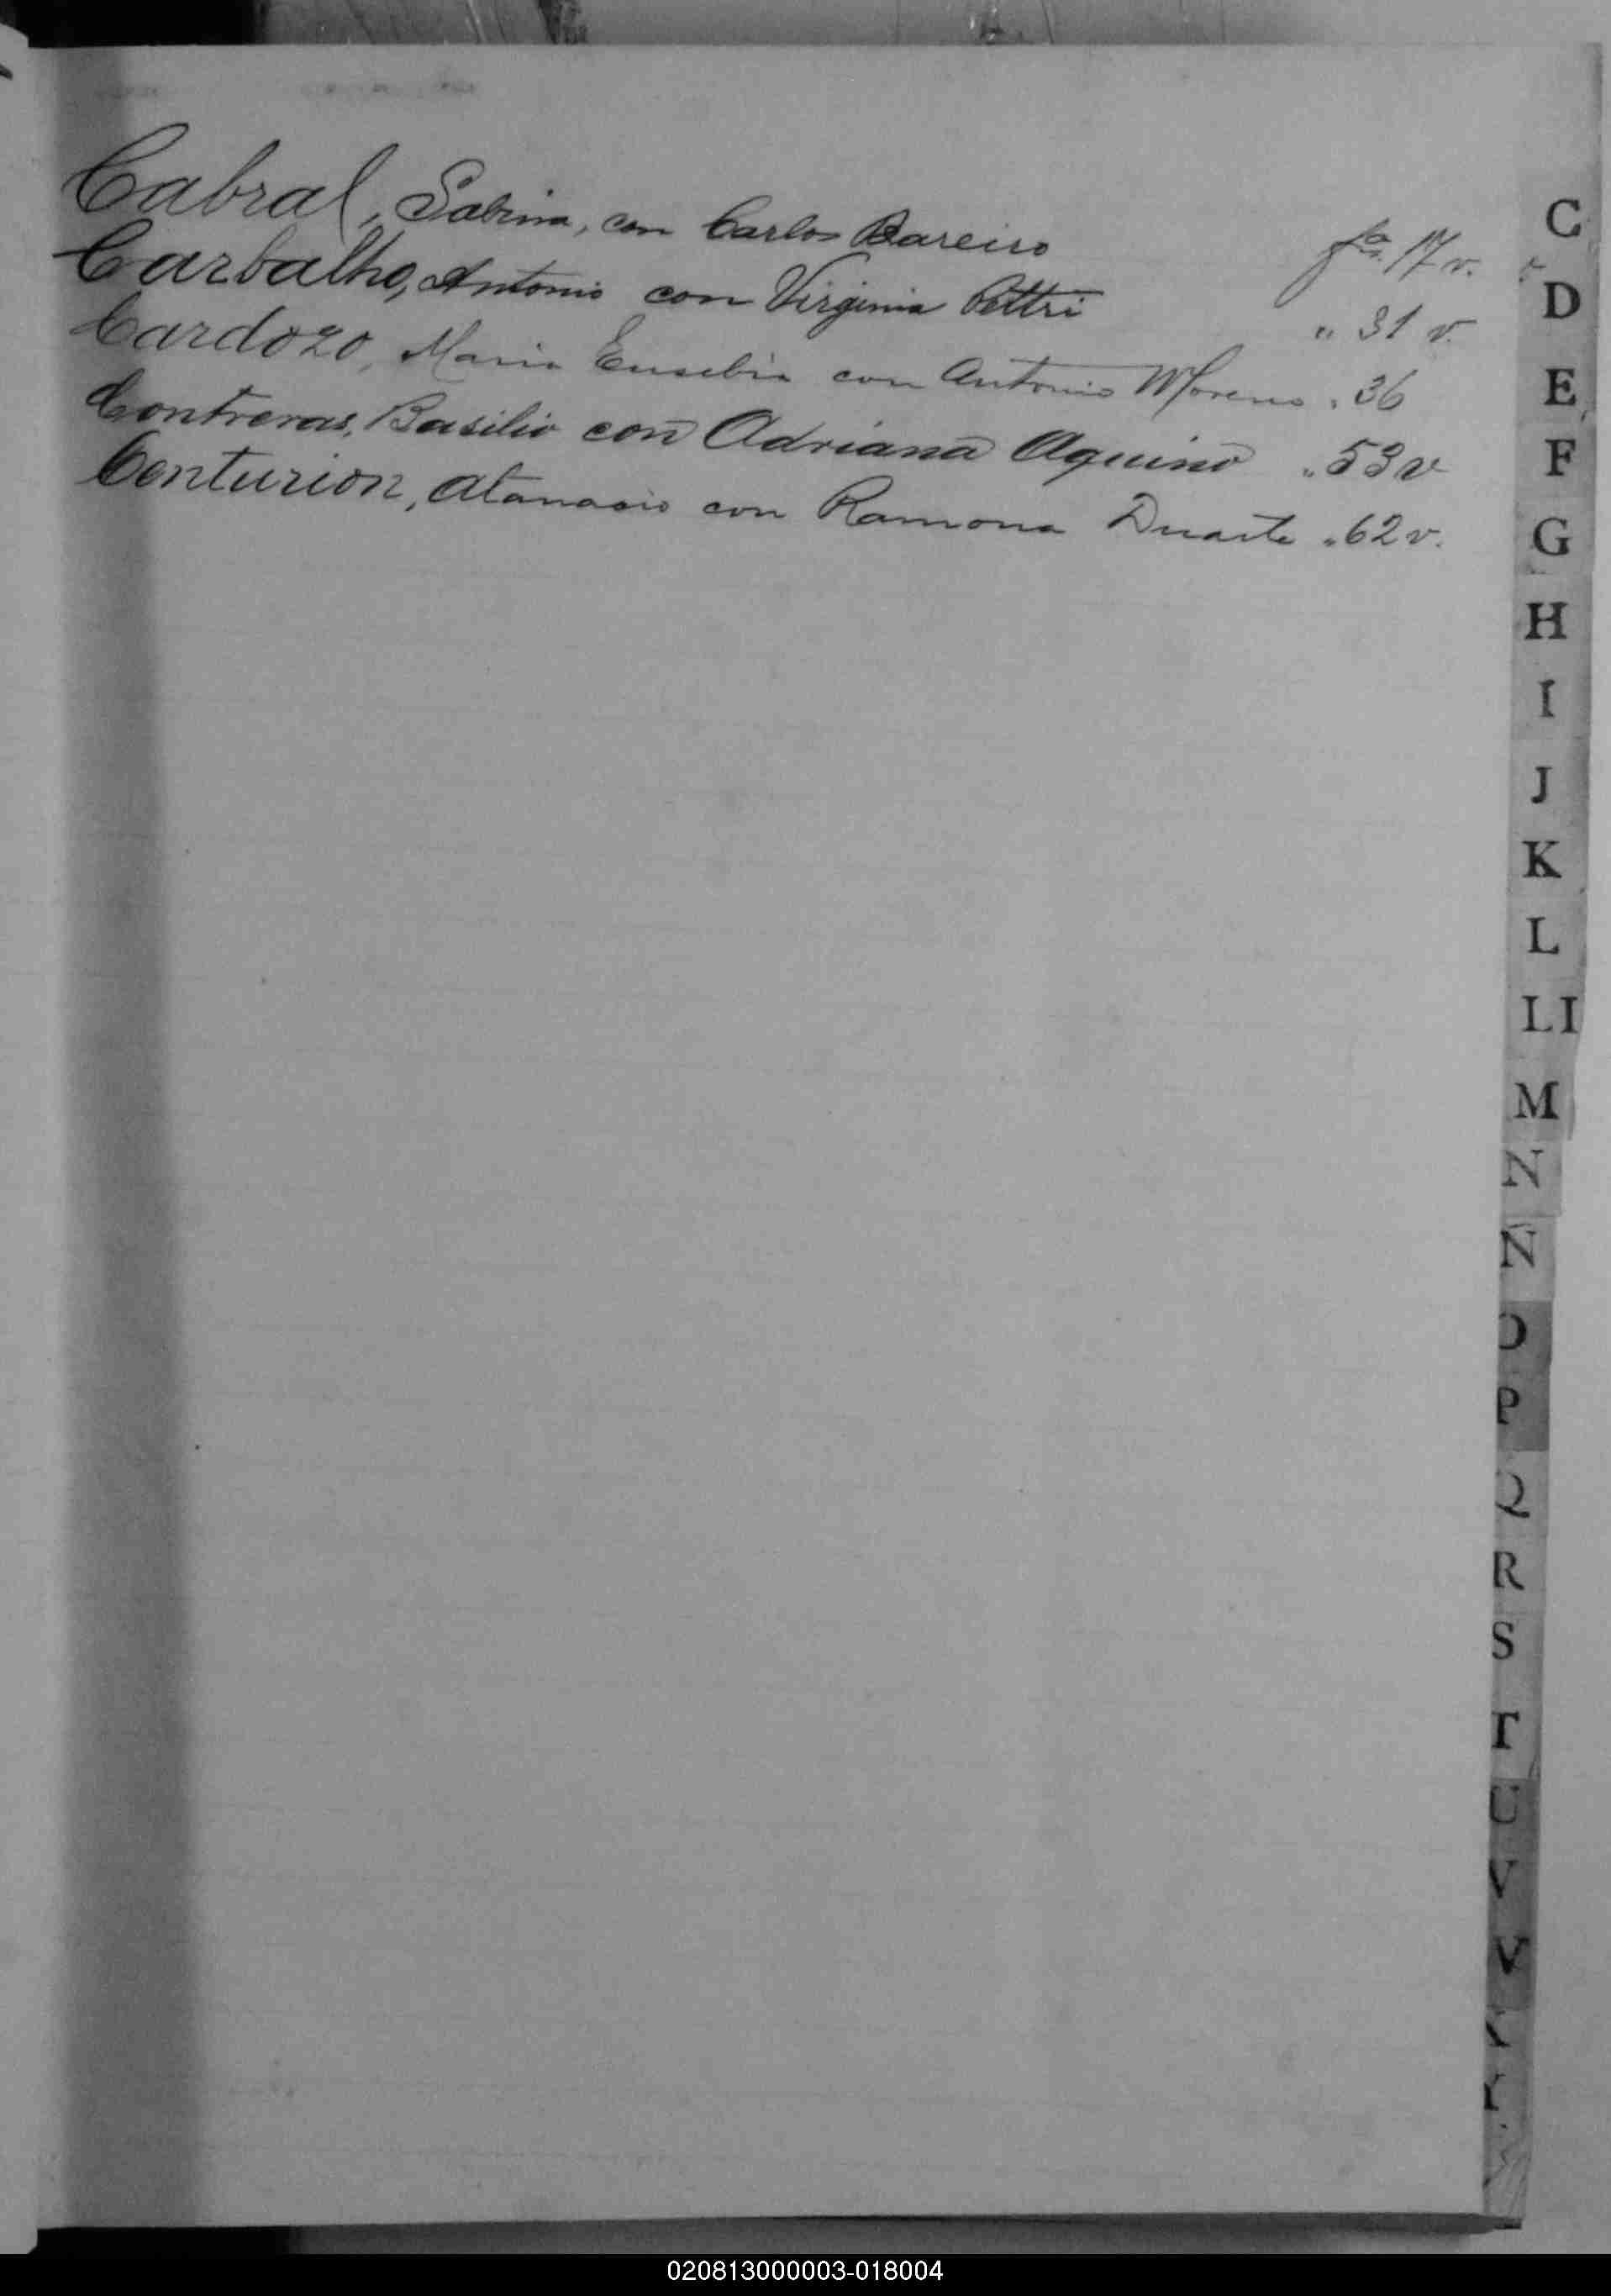 Cabral, Sabina, con Carlos Bareiro fs. 17 v.
Carbalho, Antonio con Virginia Pettri " 31 v.
Cardozo, Maria Eusebia con Antonio Moreno " 36
Contreras, Basilio con Adriana Aquino " 53 v
Centurion, Atanacio con Ramona Duarte " 62 v.
C
D
E
F
G
H
I
J
K
L
LI
M
N
Ñ
O
P
Q
R
S
T
U
V
V
Y
020813000003-018004